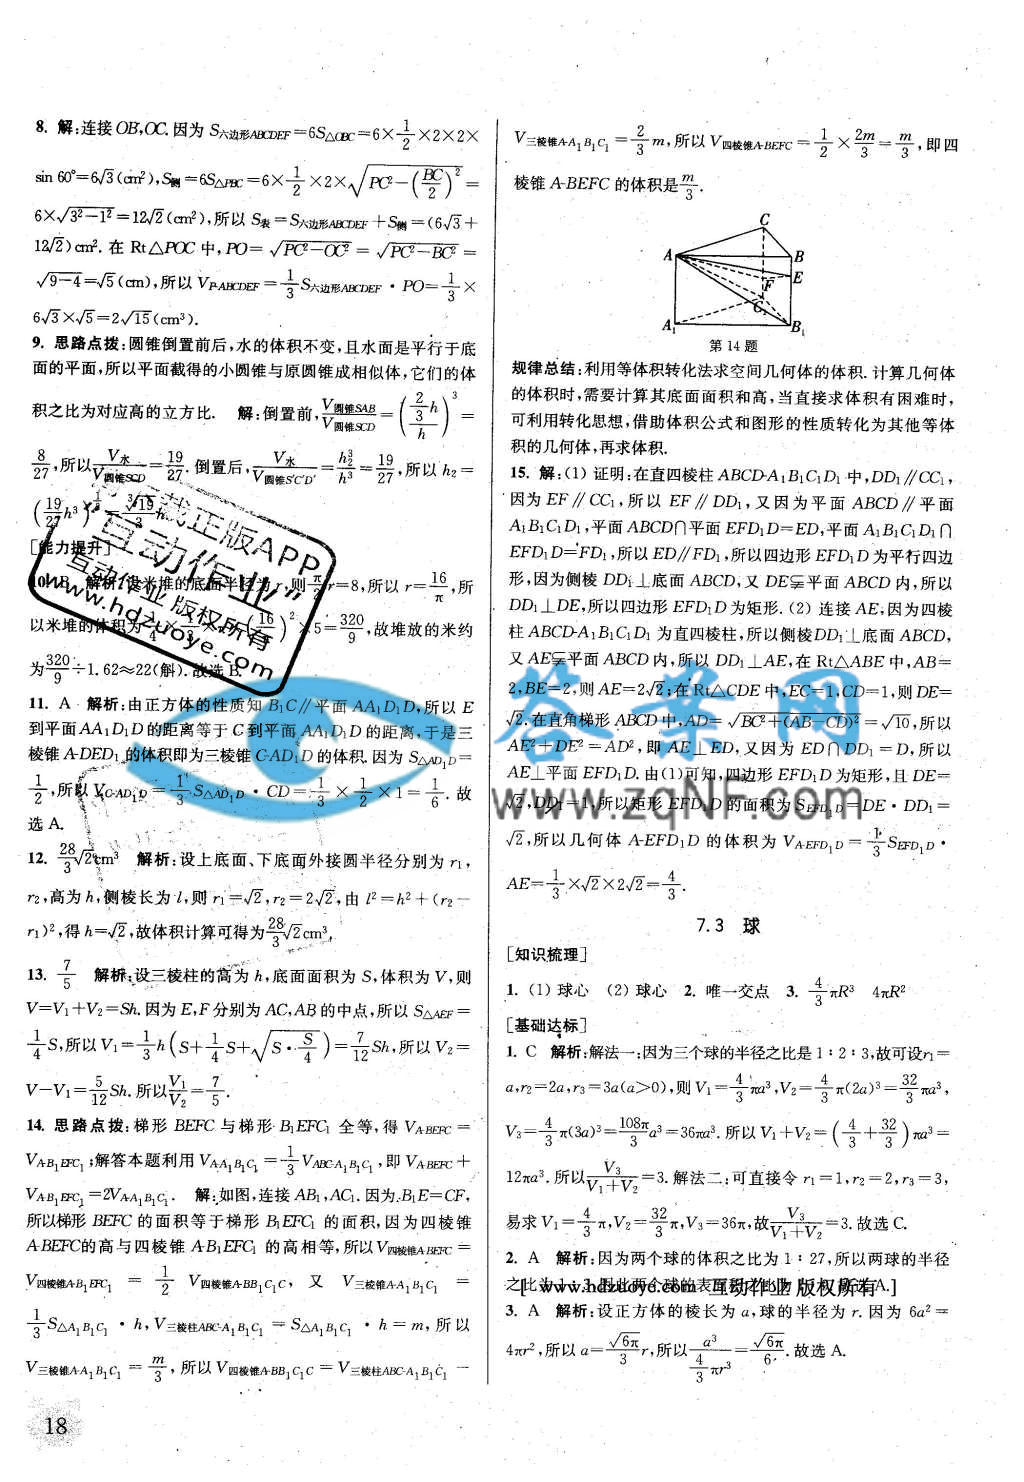 8. 解:连接 OB,OC. 因为 S六边形ABCDEF=6S△OBC=6×1/2×2×2×
sin 60°=6√3(cm²),S侧=6S△PBC=6×1/2×2×√(PC²-(BC/2)²)=
6×√(3²-1²)=12√2(cm²),所以 S表=S六边形ABCDEF+S侧=(6√3+
12√2)cm². 在 Rt△POC 中,PO=√(PC²-OC²)=√(PC²-BC²)=
√(9-4)=√5(cm),所以 VP-ABCDEF=1/3S六边形ABCDEF·PO=1/3×
6√3×√5=2√15(cm³).
9. 思路点拨:圆锥倒置前后,水的体积不变,且水面是平行于底
面的平面,所以平面截得的小圆锥与原圆锥成相似体,它们的体
积之比为对应高的立方比. 解:倒置前,V圆锥SAB/V圆锥SCD=(2/3h/h)³=
8/27,所以V水/V圆锥SCD=19/27. 倒置后,V水/V圆锥S'C'D'=h₂³/h³=19/27,所以 h₂=
(19/27h³)^(1/3)=∛19/3h.
[能力提升]
10. B 解析:设米堆的底面半径为 r,则π/2r=8,所以 r=16/π,所
以米堆的体积为1/4×1/3×π·(16/π)²×5=320/9,故堆放的米约
为320/9÷1.62≈22(斛). 故选 B.
11. A 解析:由正方体的性质知 B₁C∥平面 AA₁D₁D,所以 E
到平面 AA₁D₁D 的距离等于 C 到平面 AA₁D₁D 的距离,于是三
棱锥 A-DED₁ 的体积即为三棱锥 C-AD₁D 的体积. 因为 S△AD₁D=
1/2,所以 VC-AD₁D=1/3·S△AD₁D·CD=1/3×1/2×1=1/6. 故
选 A.
12. 28/3√2cm³ 解析:设上底面、下底面外接圆半径分别为 r₁,
r₂,高为 h,侧棱长为 l,则 r₁=√2,r₂=2√2,由 l²=h²+(r₂-
r₁)²,得 h=√2,故体积计算可得为28/3√2cm³,
13. 7/5 解析:设三棱柱的高为 h,底面面积为 S,体积为 V,则
V=V₁+V₂=Sh. 因为 E,F 分别为 AC,AB 的中点,所以 S△AEF=
1/4S,所以 V₁=1/3h(S+1/4S+√(S·S/4))=7/12Sh,所以 V₂=
V-V₁=5/12Sh. 所以V₁/V₂=7/5.
14. 思路点拨:梯形 BEFC 与梯形 B₁EFC₁ 全等,得 VA-BEFC=
VA-B₁EFC₁;解答本题利用 VA-A₁B₁C₁=1/3VABC-A₁B₁C₁,即 VA-BEFC+
VA-B₁EFC₁=2VA-A₁B₁C₁. 解:如图,连接 AB₁,AC₁. 因为 B₁E=CF,
所以梯形 BEFC 的面积等于梯形 B₁EFC₁ 的面积,因为四棱锥
A-BEFC的高与四棱锥 A-B₁EFC₁ 的高相等,所以V四棱锥A-BEFC=
V四棱锥A-B₁EFC₁=1/2V四棱锥A-BB₁C₁C,又 V三棱锥A-A₁B₁C₁=
1/3S△A₁B₁C₁·h,V三棱柱ABC-A₁B₁C₁=S△A₁B₁C₁·h=m,所以
V三棱锥A-A₁B₁C₁=m/3,所以 V四棱锥A-BB₁C₁C=V三棱柱ABC-A₁B₁C₁-
18
V三棱锥A-A₁B₁C₁=2/3m,所以 V四棱锥A-BEFC=1/2×2m/3=m/3,即四
棱锥 A-BEFC 的体积是m/3.
C
A
B
E
F
C₁
A₁
B₁
第 14 题
规律总结:利用等体积转化法求空间几何体的体积. 计算几何体
的体积时,需要计算其底面面积和高,当直接求体积有困难时,
可利用转化思想,借助体积公式和图形的性质转化为其他等体
积的几何体,再求体积.
15. 解:(1) 证明:在直四棱柱 ABCD-A₁B₁C₁D₁ 中,DD₁∥CC₁,
因为 EF∥CC₁,所以 EF∥DD₁,又因为平面 ABCD∥平面
A₁B₁C₁D₁,平面 ABCD∩平面 EFD₁D=ED,平面 A₁B₁C₁D₁∩
EFD₁D=FD₁,所以 ED∥FD₁,所以四边形 EFD₁D 为平行四边
形,因为侧棱 DD₁⊥底面 ABCD,又 DE⫋平面 ABCD 内,所以
DD₁⊥DE,所以四边形 EFD₁D 为矩形. (2) 连接 AE,因为四棱
柱 ABCD-A₁B₁C₁D₁ 为直四棱柱,所以侧棱DD₁⊥底面 ABCD,
又 AE⫋平面 ABCD 内,所以 DD₁⊥AE,在 Rt△ABE 中,AB=
2,BE=2,则 AE=2√2;在 Rt△CDE 中,EC=1,CD=1,则 DE=
√2. 在直角梯形 ABCD 中,AD=√(BC²+(AB-CD)²)=√10,所以
AE²+DE²=AD²,即 AE⊥ED,又因为 ED∩DD₁=D,所以
AE⊥平面 EFD₁D. 由(1)可知,四边形 EFD₁D 为矩形,且 DE=
√2,DD₁=1,所以矩形 EFD₁D 的面积为 SEFD₁D=DE·DD₁=
√2,所以几何体 A-EFD₁D 的体积为 VA-EFD₁D=1/3SEFD₁D·
AE=1/3×√2×2√2=4/3.
7.3 球
[知识梳理]
1. (1) 球心 (2) 球心 2. 唯一交点 3. 4/3πR³ 4πR²
[基础达标]
1. C 解析:解法一:因为三个球的半径之比是 1∶2∶3,故可设r₁=
a,r₂=2a,r₃=3a(a>0),则 V₁=4/3πa³,V₂=4/3π(2a)³=32/3πa³,
V₃=4/3π(3a)³=108π/3a³=36πa³. 所以 V₁+V₂=(4/3+32/3)πa³=
12πa³. 所以V₃/(V₁+V₂)=3. 解法二:可直接令 r₁=1,r₂=2,r₃=3,
易求 V₁=4/3π,V₂=32/3π,V₃=36π,故V₃/(V₁+V₂)=3. 故选 C.
2. A 解析:因为两个球的体积之比为 1∶27,所以两球的半径
之比为 1∶3,因此两个球的表面积之比为 1∶9. 故选 A.
[ www.hdzuoye.com 互动作业 版权所有 ]
3. A 解析:设正方体的棱长为 a,球的半径为 r. 因为 6a²=
4πr²,所以 a=√6π/3r,所以a³/(4/3πr³)=√6π/6. 故选 A.
下载正版APP
"互动作业"
互动作业 版权所有
www.hdzuoye.com
答案网
www.zqNF.com